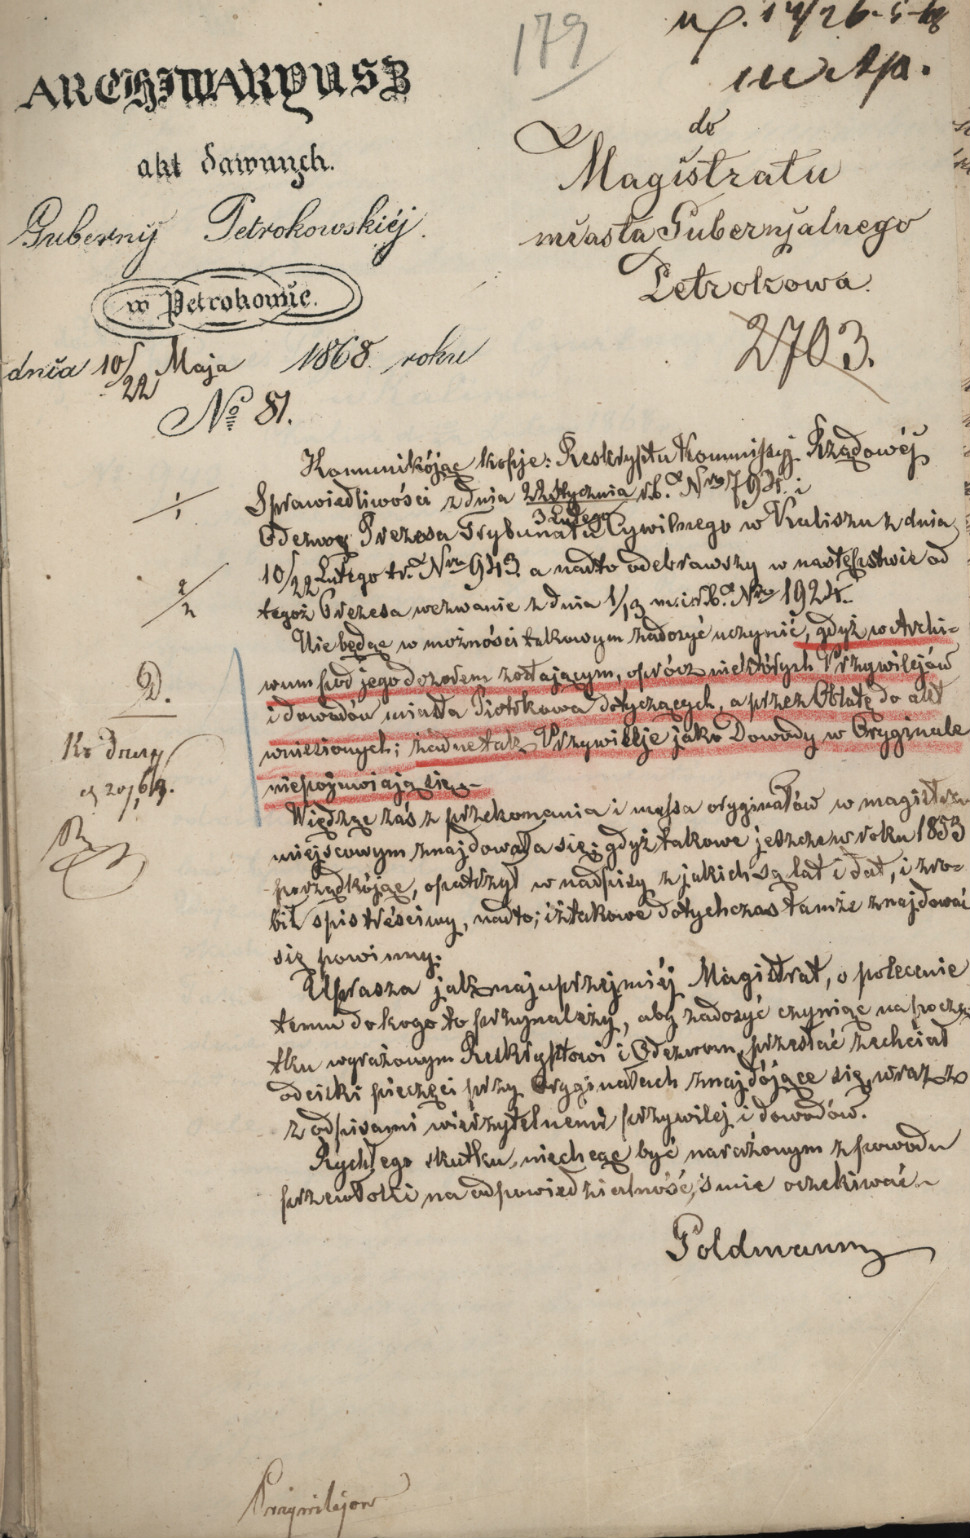 179
ARCHIWARYUSZ
akt dawnych.
Gubernij Petrokowskiéj.
w Petrokowie.
dnia 10/22 Maja 1868. roku
No 81.
do
Magistratu
miasta Gubernjalnego
Petrokowa.
2703.
Kommunikójąc kopije: Reskryptu Kommissyj Rządowéj
1/1
Sprawiedliwości z dnia 22 Stycznia/3 Lutego r.b. Nro 794. i
Odezwy Prezesa Trybunału Cywilnego w Kaliszu z dnia
10/22 Lutego t.r. Nro 943. a nadto odebrawszy w następstwie od
2/2
tegoż Prezesa wezwanie z dnia 1/13 m. i r.b. Nro 1924.
Nie będąc w możności takowym zadosyć uczynić, gdyż w Archi=
wum pod jego dozorem zostającym, oprócz niektórych Przywilejów
i dowodów miasta Piotrkowa dotyczących, a przez Oblatę do akt
wniesionych; żadne tak Przywileje jako Dowody w Oryginale
nieznajdują się.-
D.
Wiedząc zaś z przekonania i massa oryginałów w magistracie
miejscowym znajdowała się; gdyż takowe jeszcze w roku 1853
porządkójąc, opatrzył w nadpisy z jakich są lat i dat, i zro=
bił spis treściwy, nadto; iż takowe dotychczas tamże znajdować
się powinny.
Uprasza jaknajuprzejmiéj Magistrat, o polecenie
temu do kogo to przynależy, aby zadosyć czyniąc na począ
tku wyrażonym Reskryptowi i Odezwom, przesłać zechciał
odciski pieczęci przy Oryginałach znajdójące się, wraz z
z odpisami wierzytelnemi przywilej i dowodów.
Rychłego skutku, niechcąc być narażonym z powodu
przewłoki na odpowiedzialność, śmie oczekiwać.-
Goldmann
Przywilejow